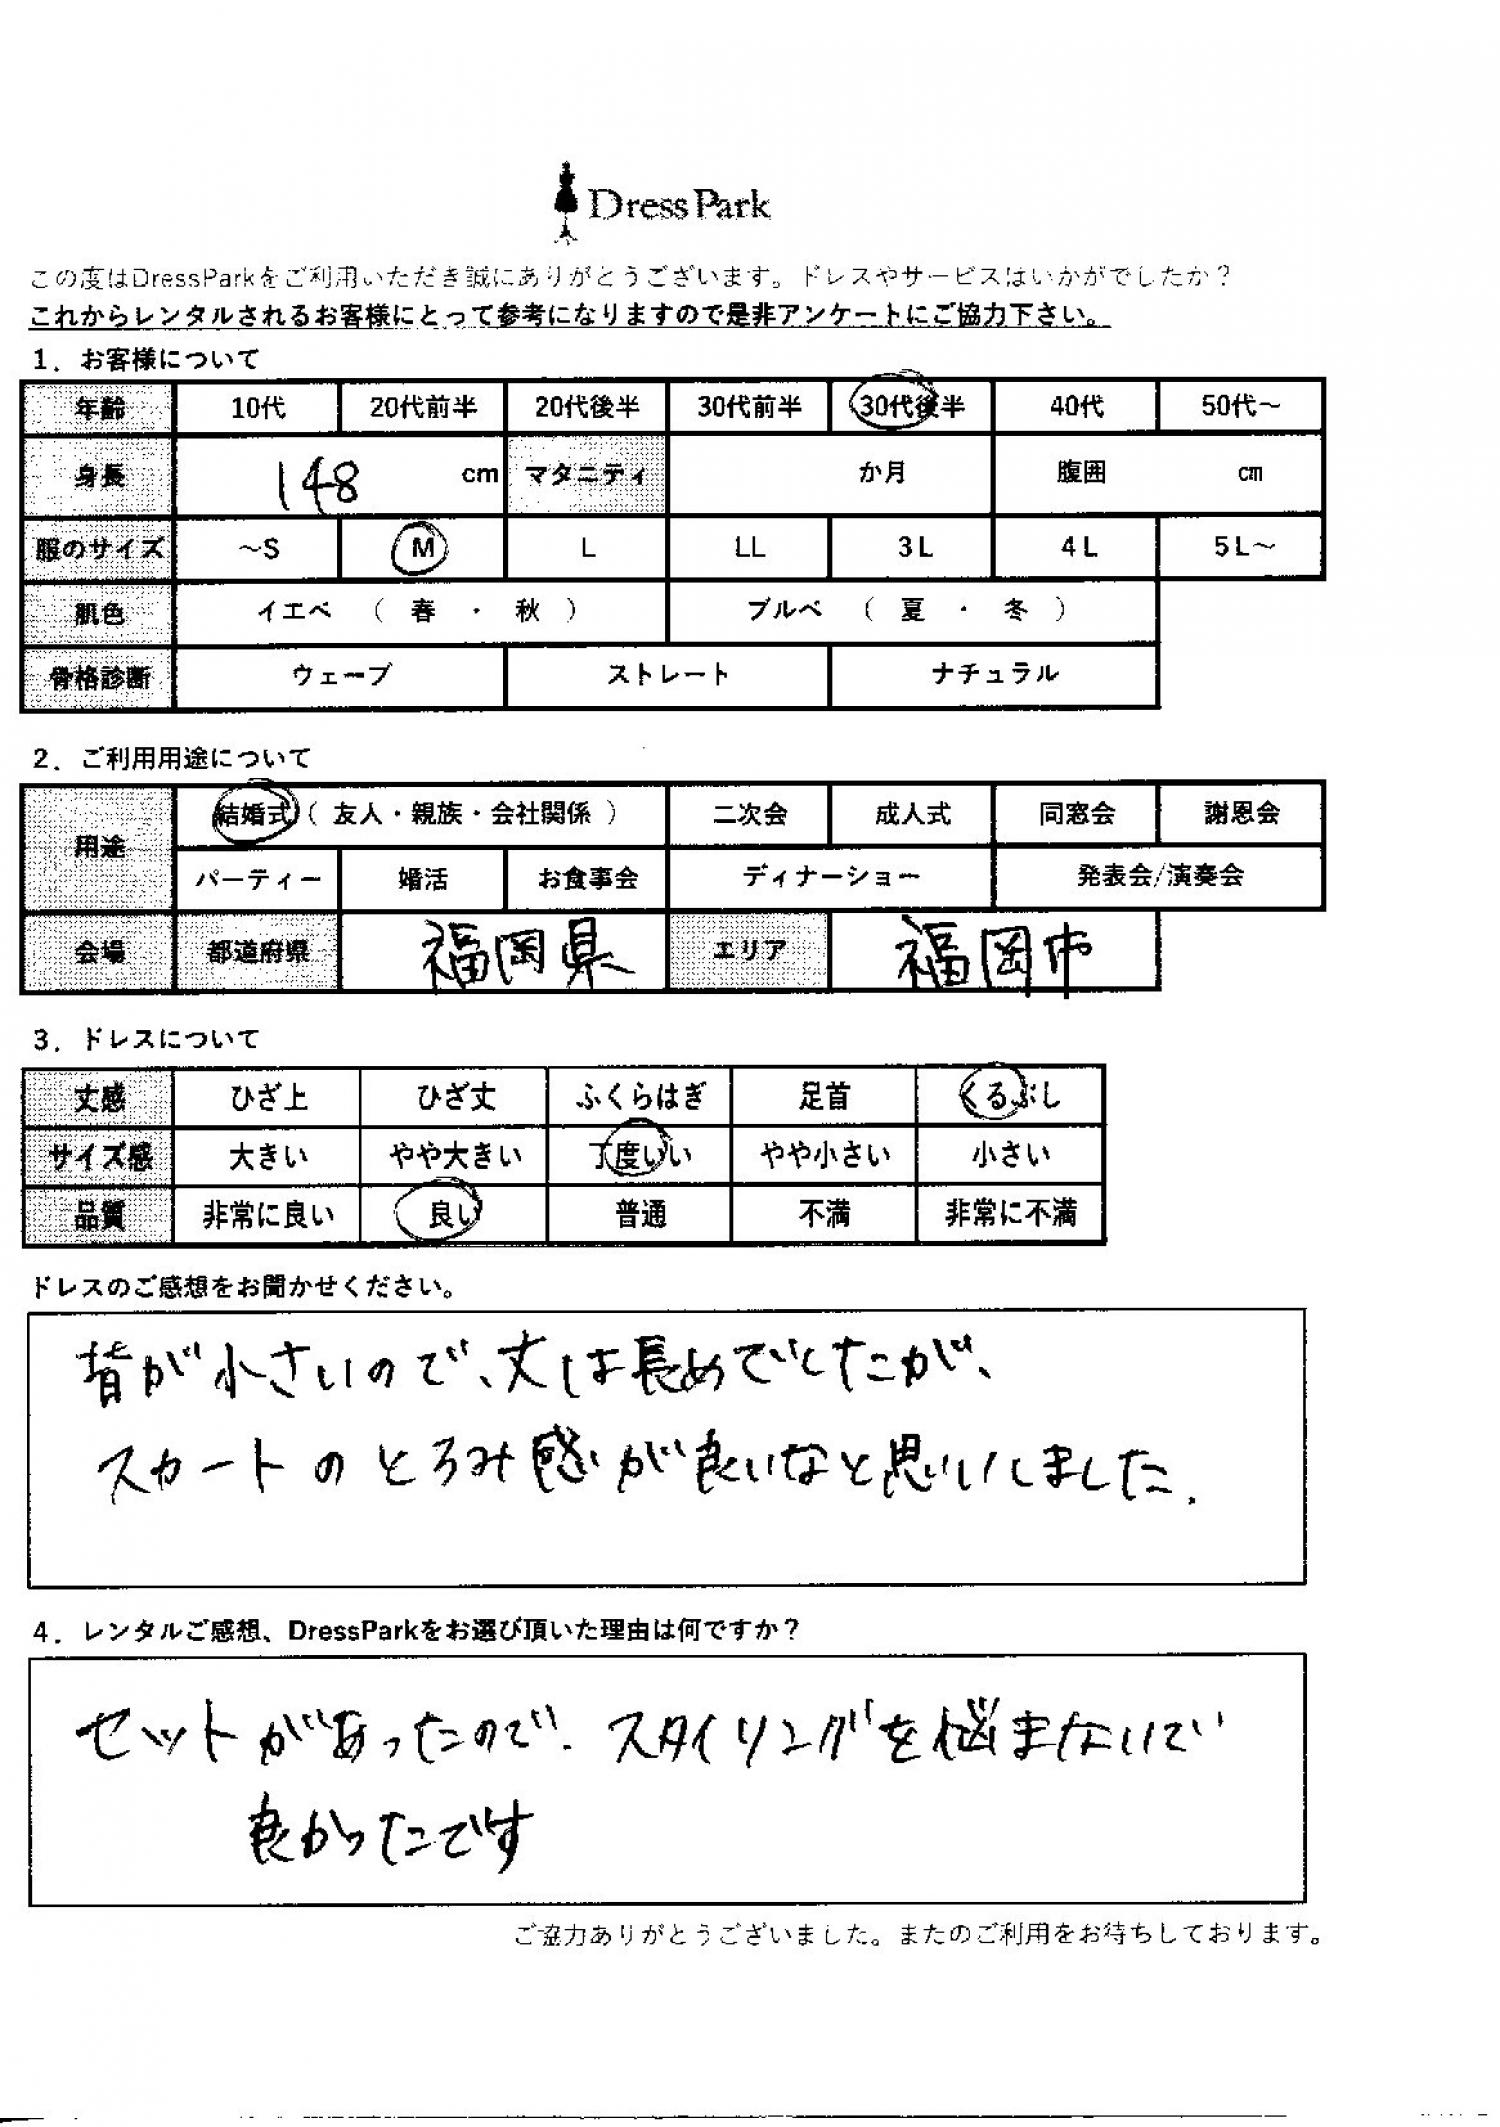 DressPark
この度はDressParkをご利用いただき誠にありがとうございます。ドレスやサービスはいかがでしたか？
これからレンタルされるお客様にとって参考になりますので是非アンケートにご協力下さい。
1．お客様について
年齢 10代 20代前半 20代後半 30代前半 30代後半 40代 50代～
身長 148 cm マタニティ か月 腹囲 cm
服のサイズ ～S M L LL 3L 4L 5L～
肌色 イエベ （ 春 ・ 秋 ） ブルベ （ 夏 ・ 冬 ）
骨格診断 ウェーブ ストレート ナチュラル
2．ご利用用途について
用途 結婚式（ 友人・親族・会社関係 ） 二次会 成人式 同窓会 謝恩会
パーティー 婚活 お食事会 ディナーショー 発表会/演奏会
会場 都道府県 福岡県 エリア 福岡市
3．ドレスについて
丈感 ひざ上 ひざ丈 ふくらはぎ 足首 くるぶし
サイズ感 大きい やや大きい 丁度いい やや小さい 小さい
品質 非常に良い 良い 普通 不満 非常に不満
ドレスのご感想をお聞かせください。
背が小さいので、丈は長めでしたが、
スカートのとろみ感が良いなと思いしました.
4．レンタルご感想、DressParkをお選び頂いた理由は何ですか？
セットがあったので. スタイリングを悩まないで
良かったです
ご協力ありがとうございました。またのご利用をお待ちしております。